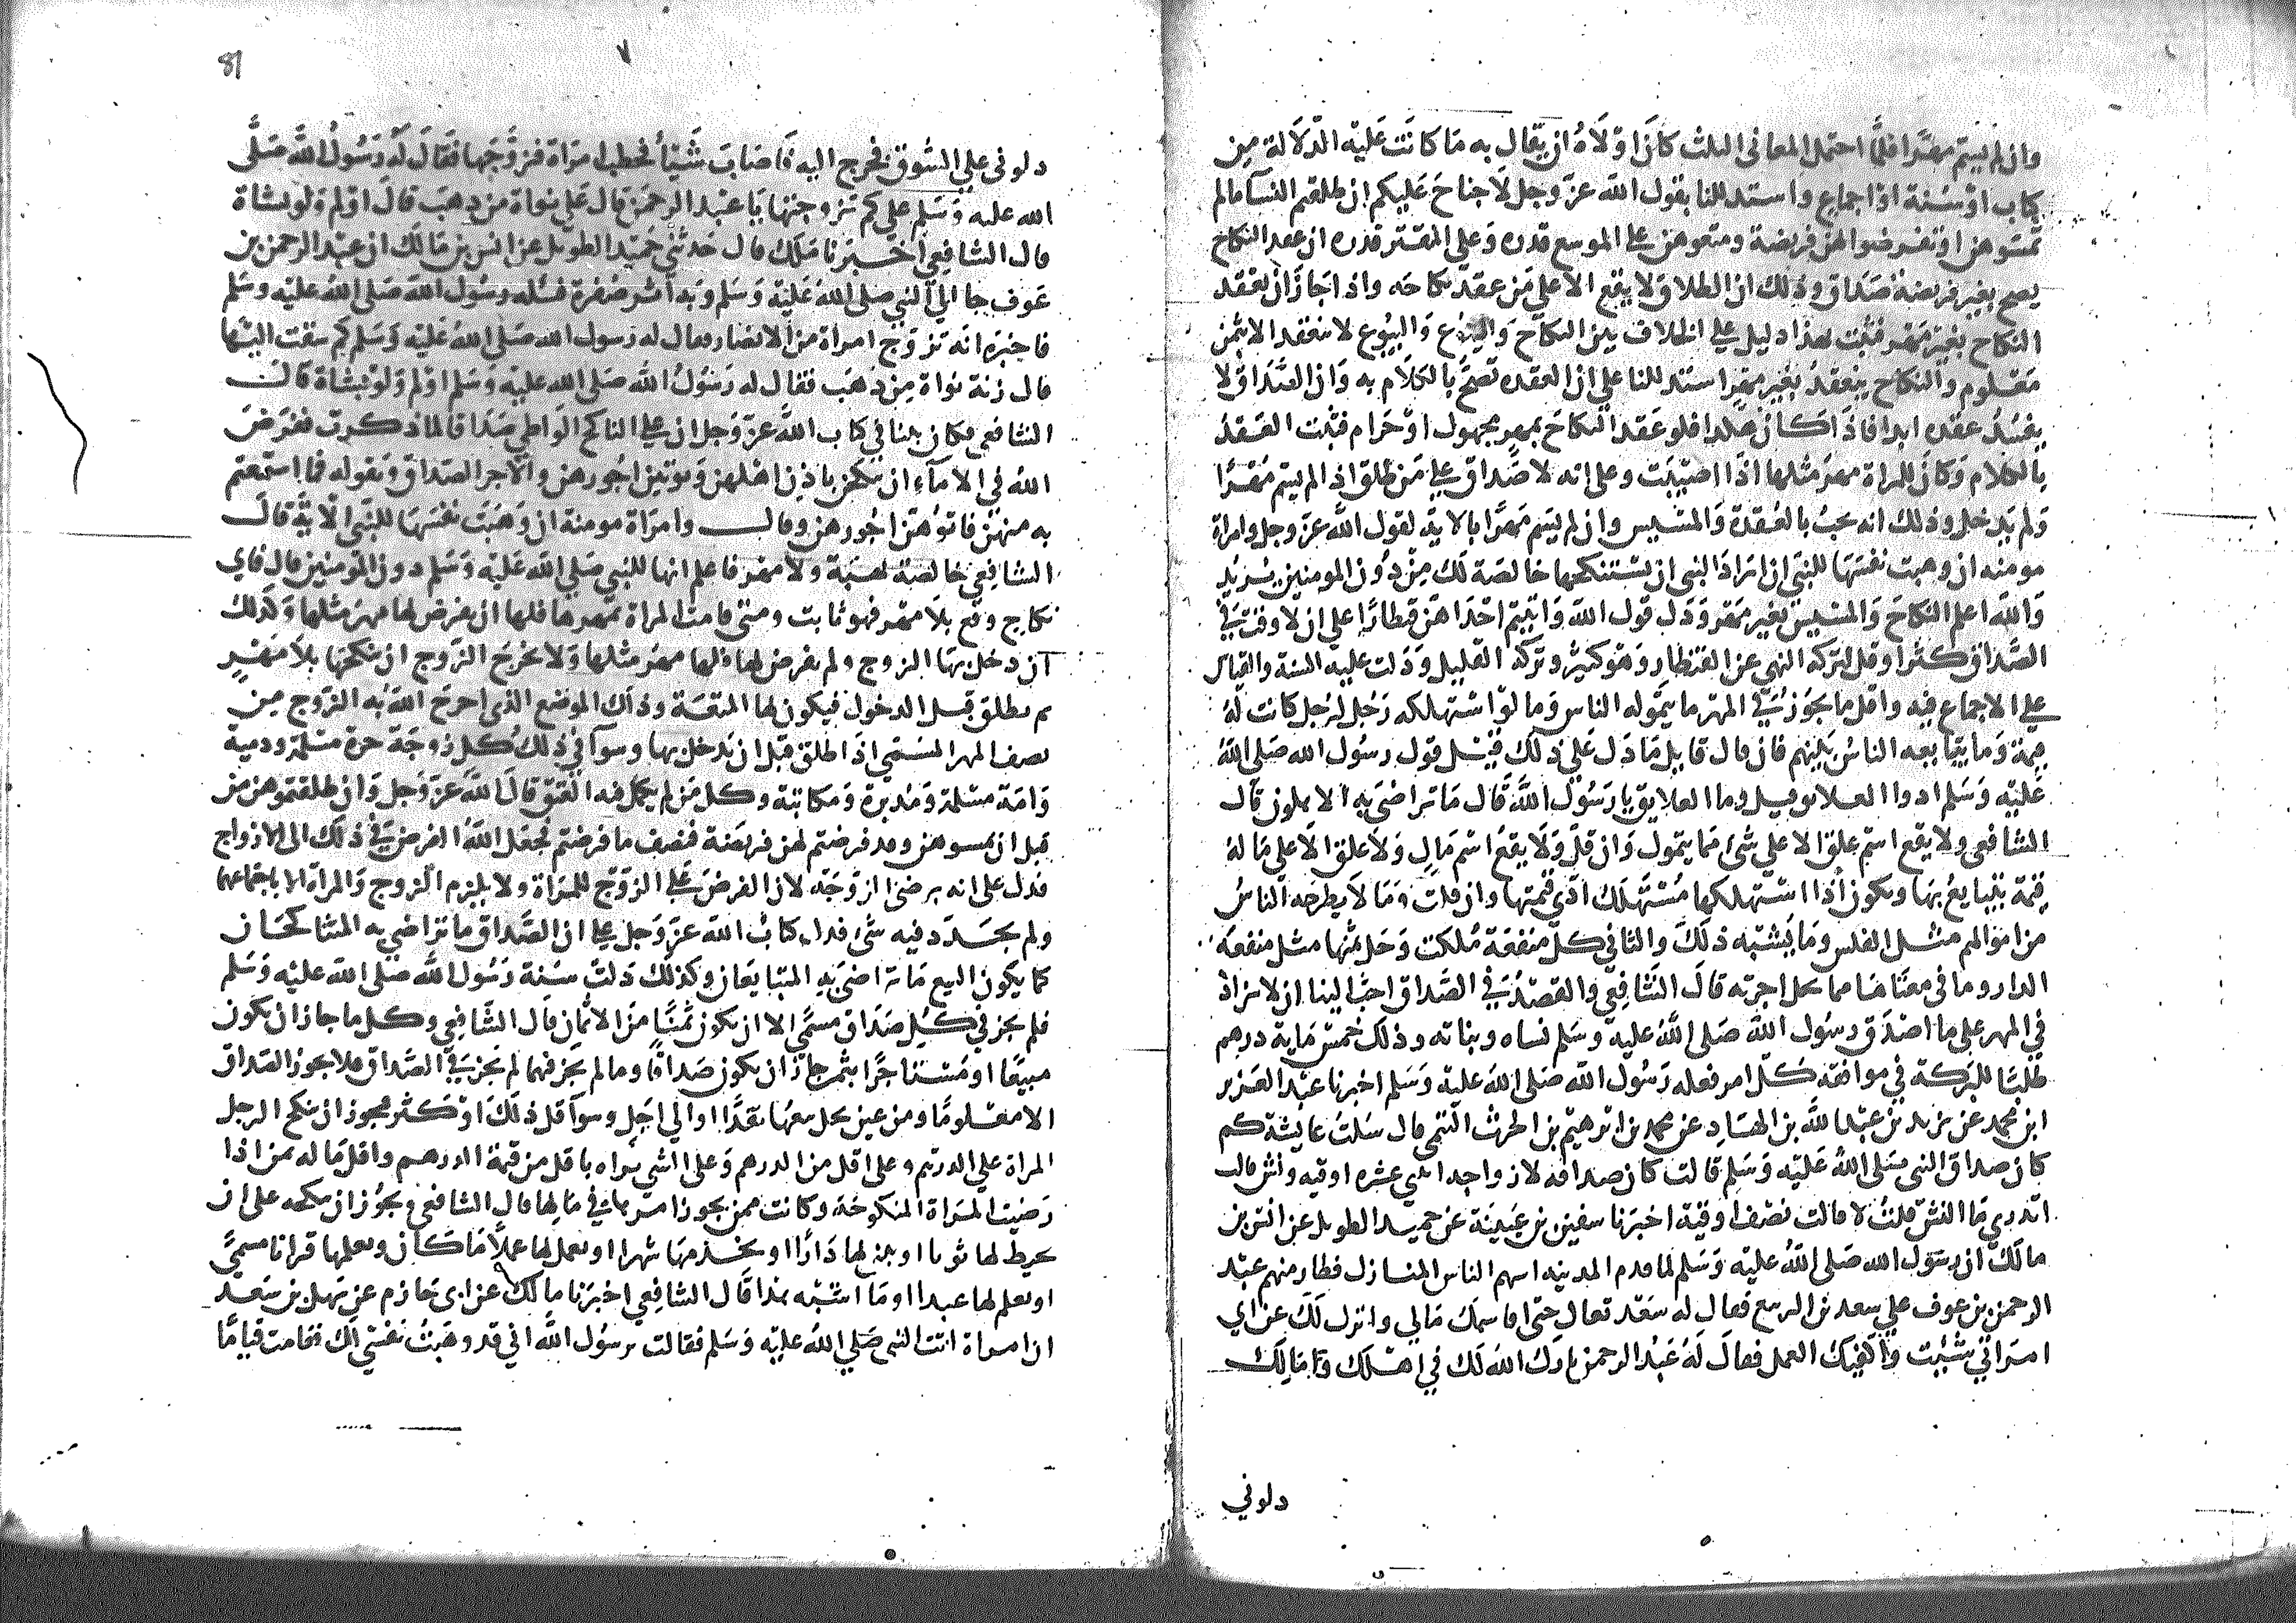 وان لم يسم مهرا فلما احتمل المعاني الثلث كان اولاه ان يقال به ما كانت عليه الدلالة من
كتاب او سنة او اجماع واستدللنا بقول الله عز وجل لا جناح عليكم ان طلقتم النسا ما لم
تمسوهن او تفرضوا لهن فريضة ومتعوهن على الموسع قدره وعلى المقتر قدره ان عقد النكاح
يصح بغير فريضة صداق وذلك ان الطلاق لا يقع الا على من عقد نكاحه واذا جاز ان يعقد
النكاح بغير مهر فثبت فهذا دليل على الخلاف بين النكاح والبيوع والبيوع لا تنعقد الا بثمن
معلوم والنكاح ينعقد بغير مهر استدللنا على ان العقد تصح بالكلام به وان الصداق لا
يفسد عقده ابدا فاذا كان هكذا فلو عقد النكاح بمهر مجهول او حرام فثبتت العقدة
بالكلام وكان للمراة مهر مثلها اذا اصيبت وعلى انه لا صداق على من طلق اذا لم يسم مهرا
ولم يدخل وذلك انه يجب بالعقدة والمسيس وان لم يسم مهرا بالاية لقول الله عز وجل وامراة
مومنه ان وهبت نفسها للنبي ان اراد النبي ان يستنكحها خالصة لك من دون المومنين يريد
والله اعلم النكاح والمسيس بغير مهر ودل قول الله واتيتم احداهن قنطارا على ان لا وقت في
الصداق كثر او قل لتركه النهي عن القنطار وهو كثير وتركه القليل ودلت عليه السنة والقياس
على الاجماع فيه واقل ما يجوز في المهر ما يتموله الناس وما لو استهلكه رجل لرجل كانت له
قيمة وما يتبايعه الناس بينهم فان قال قايل ما دل على ذلك قيل قول رسول الله صلى الله
عليه وسلم ادوا العلايق قيل وما العلايق يا رسول الله قال ما تراضى به الاهلون قال
الشافعي ولا يقع اسم علق الا على شئ مما يتمول وان قل ولا يقع اسم مال ولا علق الا على ما له
قيمة يتبايع بها ويكون اذا استهلكها مستهلك ادى قيمتها وان قلت وما لا يطرحه الناس
من اموالهم مثل الفلس وما يشبه ذلك والثاني كل منفعة ملكت وحل ثمنها مثل منفعة
الدار وما في معناها مما يحل اجرته قال الشافعي والقصد في الصداق احب الينا ان لا نزاد
في المهر على ما اصدق رسول الله صلى الله عليه وسلم نساه وبناته وذلك خمس ماية درهم
طلبا للبركة في موافقة كل امر فعله رسول الله صلى الله عليه وسلم اخبرنا عبد العزيز
ابن محمد عن يزيد بن عبد الله بن الهاد عن محمد بن ابرهيم بن الحرث التيمي قال سلت عايشة كم
كان صداق النبي صلى الله عليه وسلم قالت كان صداقه لازواجه اثنى عشره اوقيه ونش قالت
اتدري ما النش قلت لا قالت نصف اوقية اخبرنا سفين بن عيينة عن حميد الطويل عن انس بن
مالك ان رسول الله صلى الله عليه وسلم لما قدم المدينه اسهم الناس المنازل فطار منهم عبد
الرحمن بن عوف على سعد بن الربيع فقال له سعد تعال حتى اقاسمك مالي وانزل لك عن اي
امراتي شئت واكفيك العمل فقال له عبد الرحمن بارك الله لك في اهلك ومالك
دلوني
81
٧
دلوني على السوق فخرج اليه فاصاب شيئا فخطب امراة فتزوجها فقال له رسول الله صلى
الله عليه وسلم على كم تزوجتها يا عبد الرحمن قال على نواة من ذهب قال اولم ولو بشاة
قال الشافعي اخبرنا ملك قال حدثني حميد الطويل عن انس بن مالك ان عبد الرحمن بن
عوف جا الى النبي صلى الله عليه وسلم وبه اثر صفرة فسله رسول الله صلى الله عليه وسلم
فاخبره انه تزوج امراة من الانصار فقال له رسول الله صلى الله عليه وسلم كم سقت اليها
قال زنة نواة من ذهب فقال له رسول الله صلى الله عليه وسلم اولم ولو بشاة قال
الشافعي فكان بينا في كتاب الله عز وجل ان على الناكح الواطي صداقا لما ذكرت ففرض
الله في الاماء ان ينكحن باذن اهلهن ويوتين اجورهن والاجر الصداق وبقوله فما استمتعتم
به منهن فاتوهن اجورهن وقال وامراة مومنة ان وهبت نفسها للنبي الاية قال
الشافعي خالصة بهبة ولا مهر فاعلم انها للنبي صلى الله عليه وسلم دون المومنين قال فاي
نكاح وقع بلا مهر فهو ثابت ومتى قامت المراة بمهرها فلها ان يفرض لها مهر مثلها وكذلك
ان دخل بها الزوج ولم يفرض لها فلها مهر مثلها ولا يخرج الزوج ان ينكحها بلا مهر
ثم يطلق قبل الدخول فيكون لها المتعة وذلك الموضع الذي اخرج الله به الزوج من
نصف المهر المسمى اذا طلق قبل ان يدخل بها وسوآ في ذلك كل زوجة حرة مسلمة وذمية
وامة مسلمة ومدبرة ومكاتبة وكل من لم يكمل فيه العتق قال الله عز وجل وان طلقتموهن من
قبل ان تمسوهن وقد فرضتم لهن فريضة فنصف ما فرضتم فجعل الله الفرض في ذلك الى الازواج
فدل على انه برضى الزوجة لان الفرض على الزوج للمراة ولا يلزم الزوج والمراة الا باجتماعهما
ولم يحدد فيه شئ فدل كتاب الله عز وجل على ان الصداق ما تراضى به المتناكحان
كما يكون البيع ما تراضى به المتبايعان وكذلك دلت سنة رسول الله صلى الله عليه وسلم
فلم يجز في كل صداق مسمى الا ان يكون ثمنا من الاثمان قال الشافعي وكل ما جاز ان يكون
مبيعا او مستاجرا بثمن جاز ان يكون صداقا وما لم يجز فيهما لم يجز في الصداق فلا يجوز الصداق
الا معلوما ومن عين يحل بيعها نقدا او الى اجل وسوآ قل ذلك او كثر فيجوز ان ينكح الرجل
المراة على الدرهم وعلى اقل من الدرهم وعلى الشي يراه باقل من قيمة الدرهم واقل ما له ثمن اذا
رضيت المراة المنكوحة وكانت ممن يجوز امرها في مالها قال الشافعي ويجوز ان ينكحه على ان
يخيط لها ثوبا او يبني لها دارا او يخدمها شهرا او يعمل لها عملا ما كان ويعلمها قرانا مسمى
او يعلم لها عبدا وما اشبه هذا قال الشافعي اخبرنا مالك عن ابي حازم عن سهل بن سعد
ان امراة اتت النبي صلى الله عليه وسلم فقالت يرسول الله اني قد وهبت نفسي لك فقامت قياما